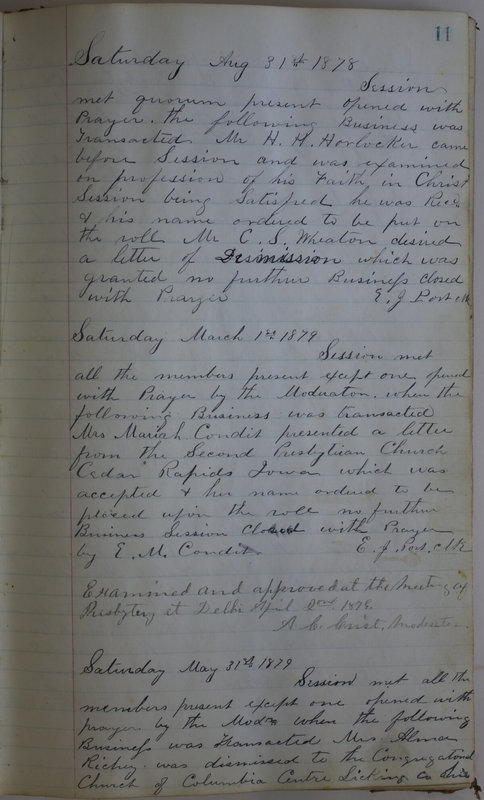 11
Saturday Aug 31st 1878
Session
met quorum present opened with
Prayer. the following Business was
Transacted Mr H. H. Horlocker came
before Session and was examined
on profession of his Faith in Christ
Session being Satisfied he was Recd
& his name ordered to be put on
the roll Mr C. S. Wheaton desired
a letter of Dismission which was
granted no further Business closed
with Prayer E. J Port
Saturday March 1st 1879
Session met
all the members present except one opened
with Prayer by the Moderator. when the
following Business was transacted
Mrs Mariah Condit presented a letter
from the Second Presbytian Church
Cedar Rapids Iowa which was
accepted & her name ordered to be
placed upon the roll no further
Business Session Closed with Prayer
by E. M. Condit E. J. Port.
Examined and approved at the Meeting of
Presbytery at Delhi April 2nd
Moderator.
Saturday May 31st 1879
Session met all the
members present except one opened with
prayer by the Modr when the following
Business was Transacted Mrs Alma
Richey was dismissed to the Congregational
Church of Columbia Centre Licking Co